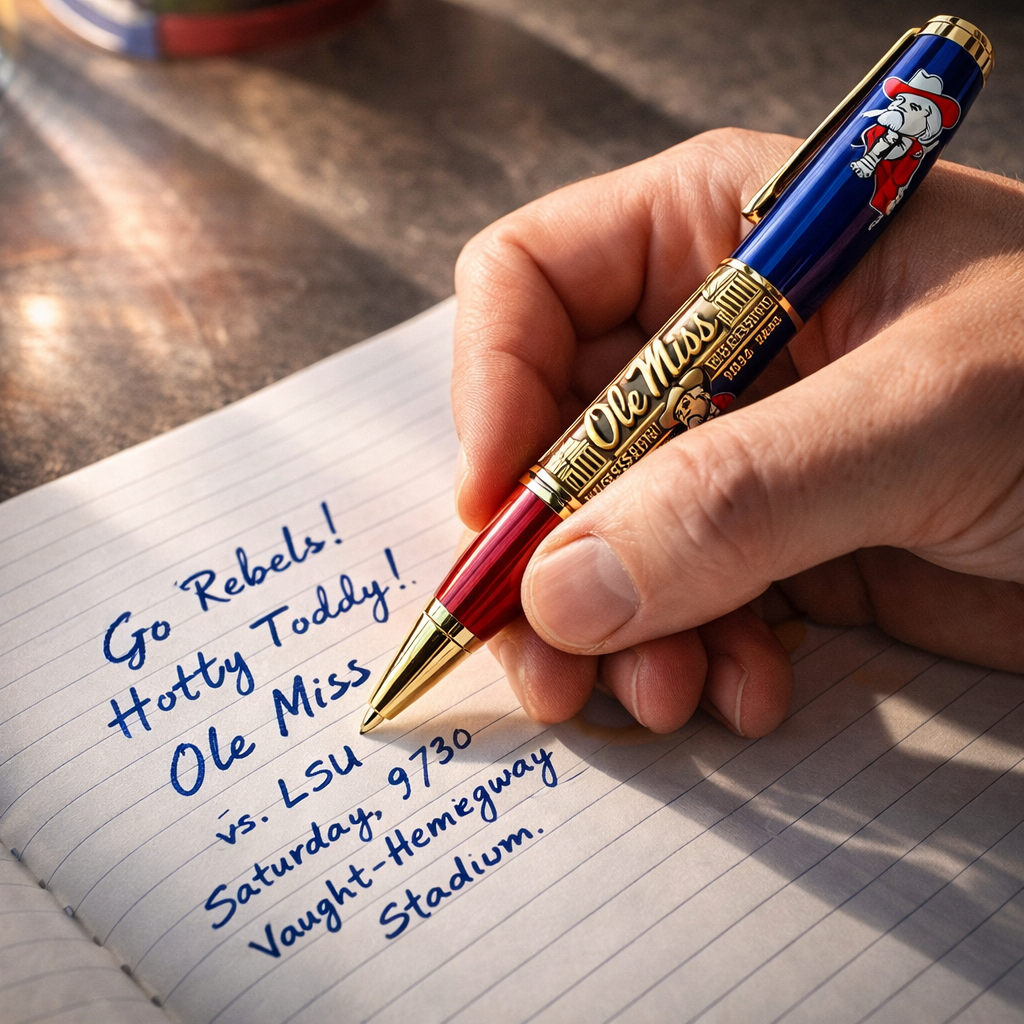 Ole Miss
Go Rebels!
Hotty Toddy!
Ole Miss
vs. LSU
Saturday, 9730
Vaught-Hemiegway
Stadium.